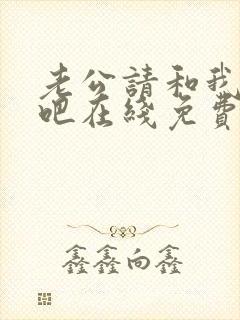 老公請和我
吧在綫免費
鑫鑫向鑫